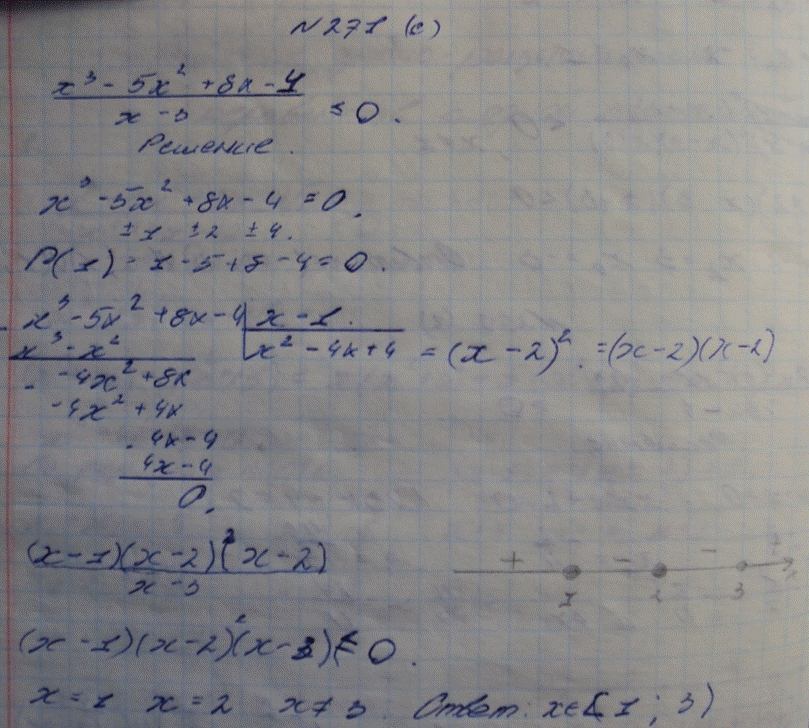 N 271 (c)
x³ - 5x² + 8x - 4
x - 3 ≤ 0.
Решение.
x³ - 5x² + 8x - 4 = 0.
±1 ±2 ±4.
P(1) = 1 - 5 + 8 - 4 = 0.
x³ - 5x² + 8x - 4 | x - 1.
x³ - x² x² - 4x + 4 = (x - 2)². = (x - 2)(x - 2)
- -4x² + 8x
-4x² + 4x
- 4x - 4
4x - 4
0.
(x - 1)(x - 2)²(x - 2)
x - 3
+ - - +
1 2 3
(x - 1)(x - 2)²(x - 3) ≤ 0.
x = 1 x = 2 x ≠ 3 Ответ: x ∈ [1; 3)